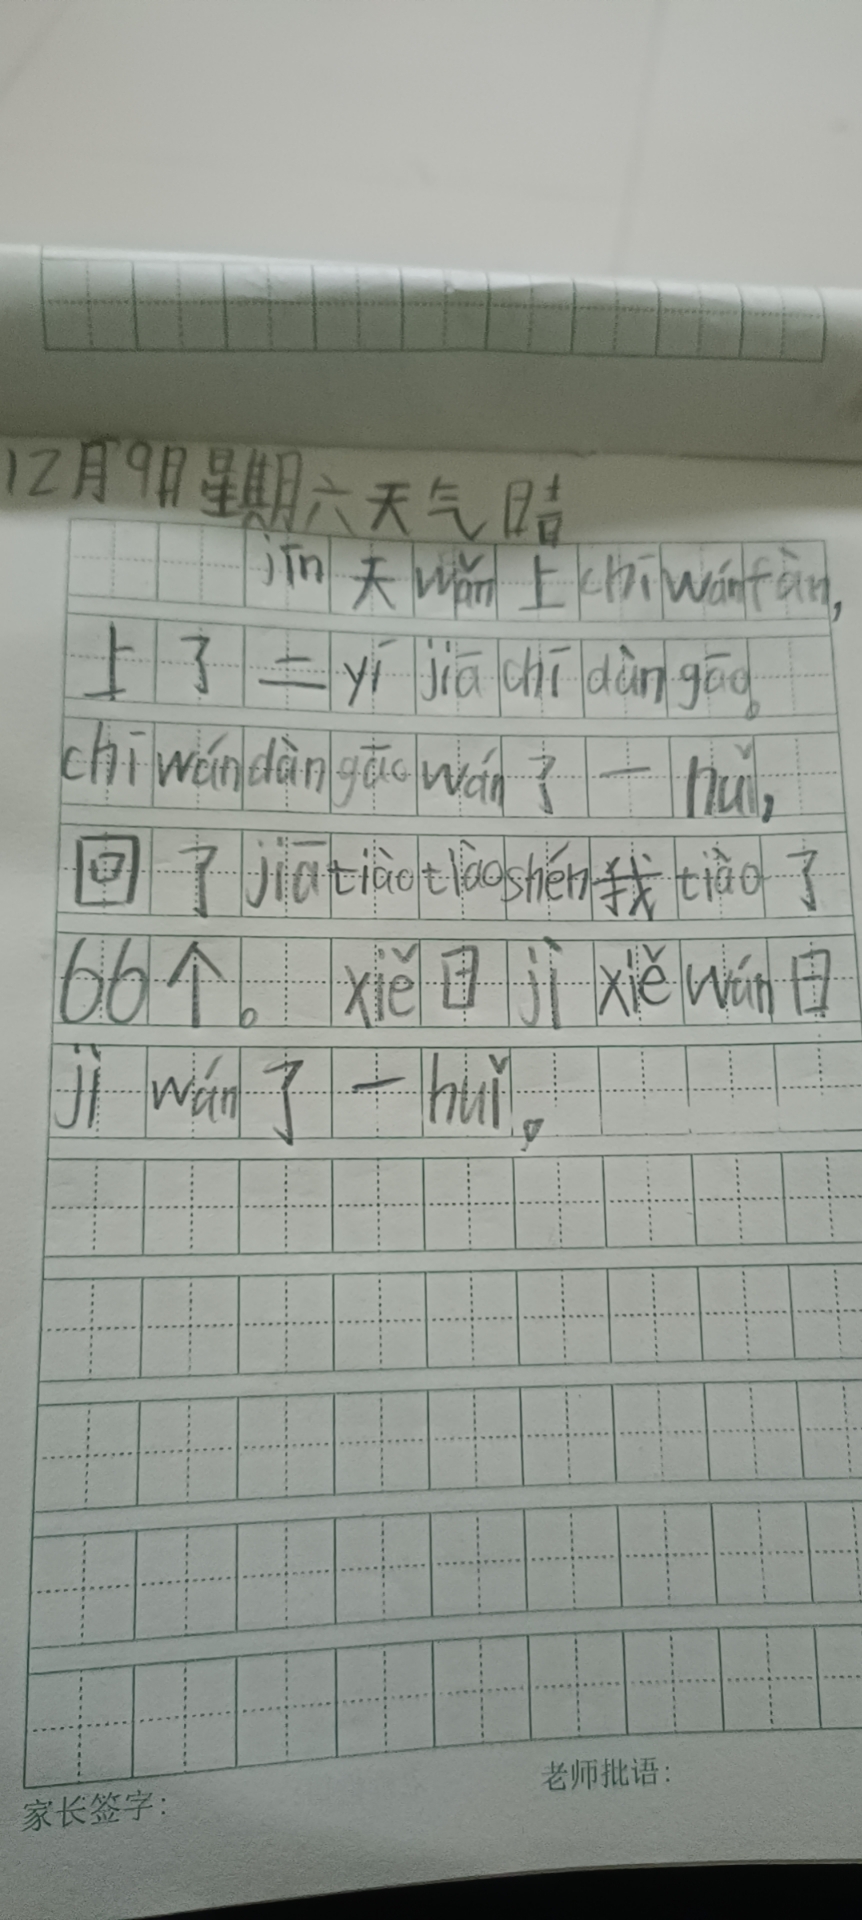 12月9日星期六天气晴
jīn天wǎn上chīwánfàn,
上了二yí jiā chī dàn gāo。
chī wán dàn gāo wán了一huǐ,
回了jiā tiào tiào shén我tiào了
66个。xiě日jì xiě wán日
jì wán了一huǐ。
家长签字:
老师批语: